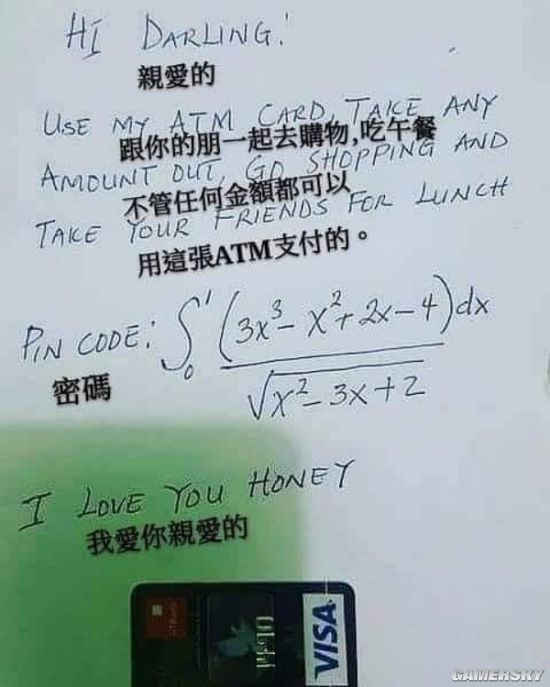 HI DARLING!
親愛的
USE MY ATM CARD, TAKE ANY
跟你的朋一起去購物,吃午餐
AMOUNT OUT, GO SHOPPING AND
不管任何金額都可以
TAKE YOUR FRIENDS FOR LUNCH
用這張ATM支付的。
PIN CODE: ∫₀¹ (3x³ - x² + 2x - 4)dx / √(x² - 3x + 2)
密碼
I LOVE YOU HONEY
我愛你親愛的
VISA
GAMERSKY